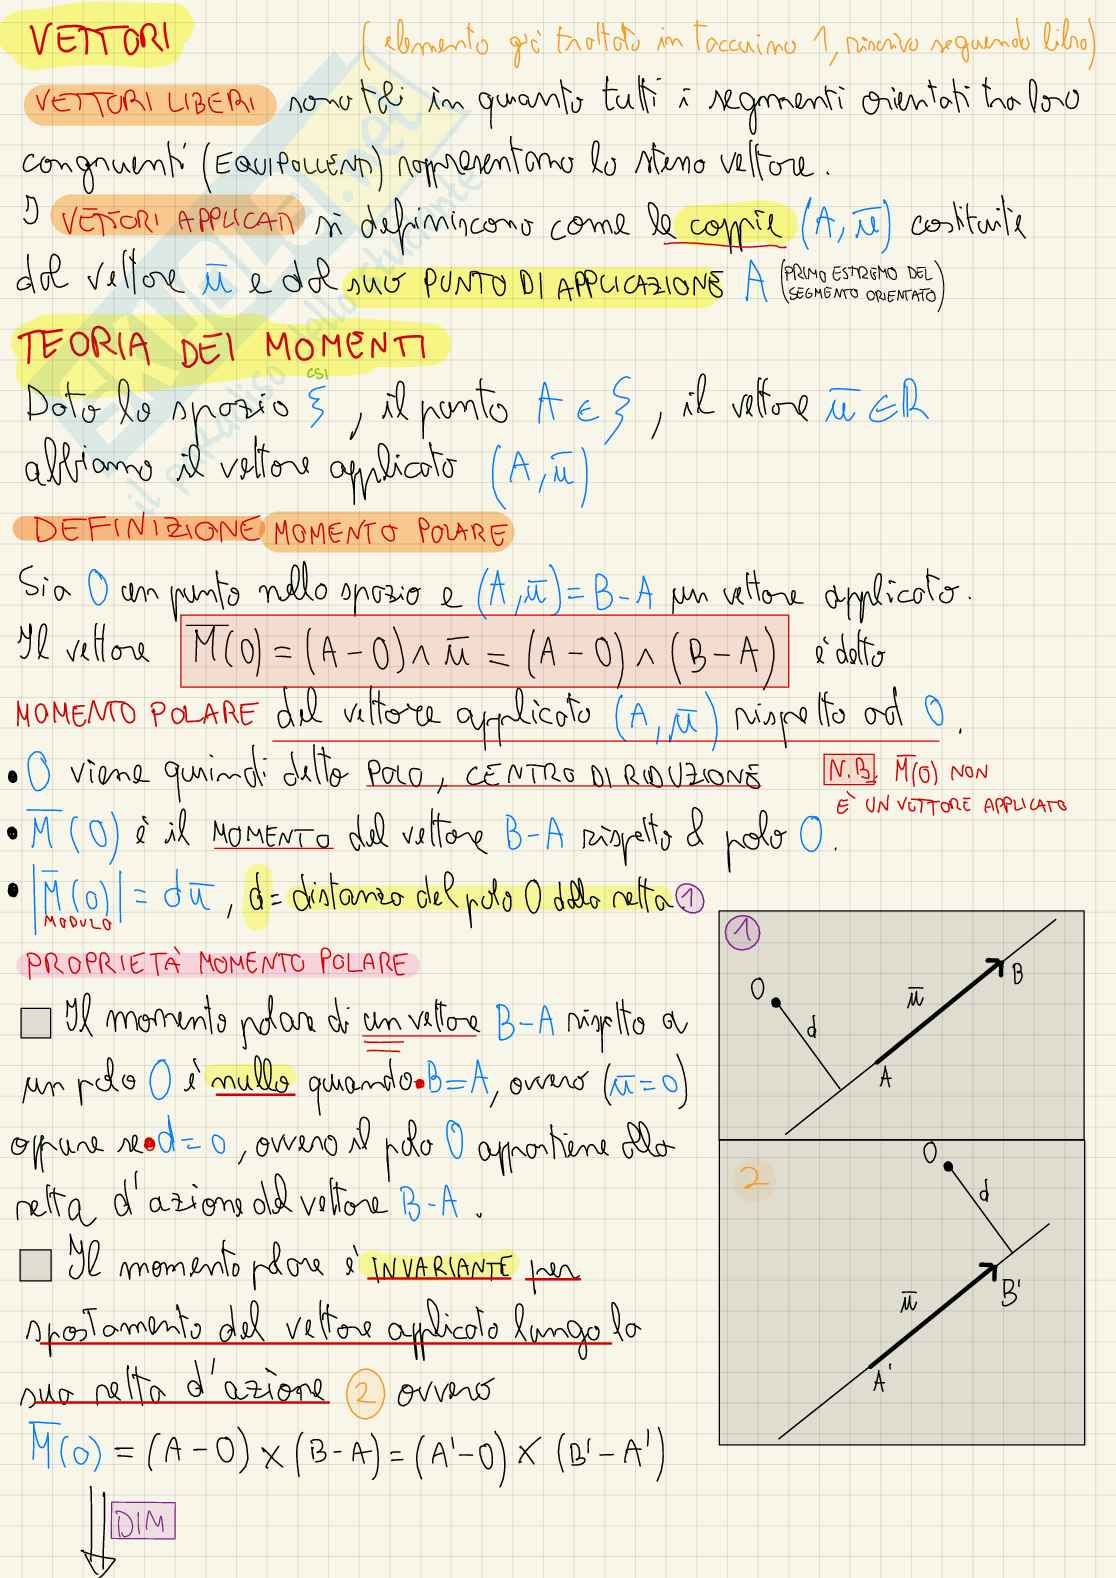 VETTORI
(elemento già trattato in taccuino 1, riscrivo seguendo libro)
VETTORI LIBERI sono tali in quanto tutti i segmenti orientati tra loro
congruenti (EQUIPOLLENTI) rappresentano lo stesso vettore.
I VETTORI APPLICATI si definiscono come le coppie (A, ū) costituite
dal vettore ū e dal suo PUNTO DI APPLICAZIONE A (PRIMO ESTREMO DEL
SEGMENTO ORIENTATO)
TEORIA DEI MOMENTI
CSI
Dato lo spazio ξ, il punto A ∈ ξ, il vettore ū ∈ R
abbiamo il vettore applicato (A, ū)
DEFINIZIONE MOMENTO POLARE
Sia O un punto nello spazio e (A, ū) = B-A un vettore applicato.
Il vettore M̄(O) = (A-O) ∧ ū = (A-O) ∧ (B-A) è detto
MOMENTO POLARE del vettore applicato (A, ū) rispetto ad O.
• O viene quindi detto POLO, CENTRO DI RIDUZIONE
N.B. M̄(O) NON
È UN VETTORE APPLICATO
• M̄(O) è il MOMENTO del vettore B-A rispetto al polo O.
• |M̄(O)| = dū, d = distanza del polo O dalla retta 1
MODULO
PROPRIETÀ MOMENTO POLARE
Il momento polare di un vettore B-A rispetto a
un polo O è nullo quando • B=A, ovvero (ū=0)
oppure se • d=0, ovvero il polo O appartiene alla
retta d'azione del vettore B-A.
Il momento polare è INVARIANTE per
spostamento del vettore applicato lungo la
sua retta d'azione 2 ovvero
M̄(O) = (A-O) × (B-A) = (A'-O) × (B'-A')
DIM
1
O
d
ū
A
B
2
O
d
ū
A'
B'
il
della